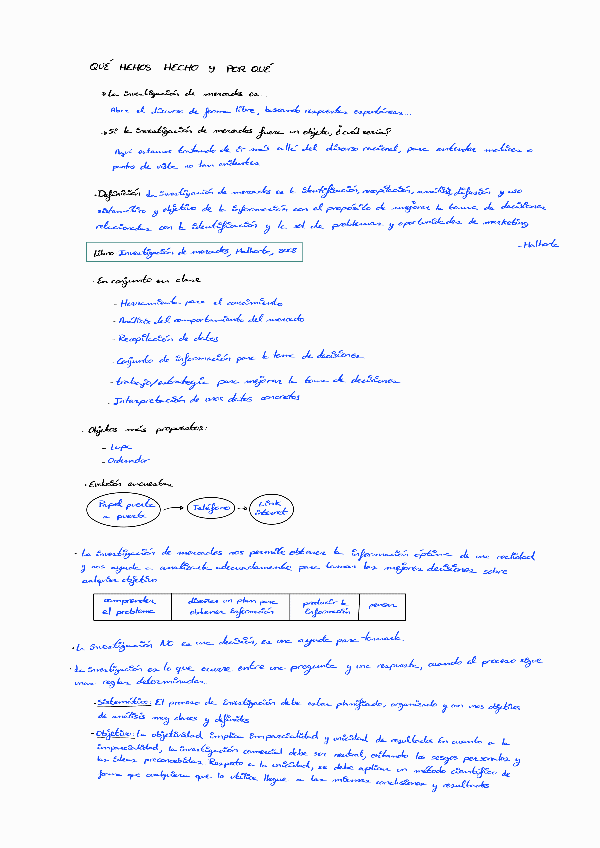 QUÉ HEMOS HECHO Y POR QUÉ
→ La investigación de mercados es...
Abre el discurso de forma libre, buscando respuestas espontáneas...
→ Si la investigación de mercados fuera un objeto, ¿cuál sería?
Aquí estamos tratando de ir más allá del discurso racional, para entender matices o
puntos de vista no tan evidentes
· Definición La investigación de mercados es la identificación, recopilación, análisis, difusión y uso
sistemático y objetivo de la información con el propósito de mejorar la toma de decisiones
relacionadas con la identificación y la sol de problemas y oportunidades de marketing
- Malhotra
Libro Investigación de mercados, Malhotra, 2008
· En conjunto en clase
- Herramienta para el conocimiento
- Análisis del comportamiento del mercado
- Recopilación de datos
- Conjunto de información para la toma de decisiones
- trabajo/estrategia para mejorar la toma de decisiones
- Interpretación de unos datos concretos
· Objetos más propuestos:
- Lupa
- Ordenador
· Evolución encuestas
Papel puerta → Teléfono → Link
a puerta internet
· La investigación de mercados nos permite obtener la información óptima de una realidad
y nos ayuda a analizarla adecuadamente para tomar las mejores decisiones sobre
cualquier objetivo
comprender diseñar un plan para producir la pensar
el problema obtener información información
· La investigación NO es una decisión, es una ayuda para tomarla.
· La investigación es lo que ocurre entre una pregunta y una respuesta, cuando el proceso sigue
unas reglas determinadas.
· Sistemática: El proceso de investigación debe estar planificado, organizado y con unos objetivos
de análisis muy claros y definidos
- Objetiva: La objetividad implica imparcialidad y unicidad de resultados En cuanto a la
imparcialidad, la investigación comercial debe ser neutral, evitando los sesgos personales y
las ideas preconcebidas Respecto a la unicidad, se debe aplicar un método científico de
forma que cualquiera que lo utilice llegue a las mismas conclusiones y resultados